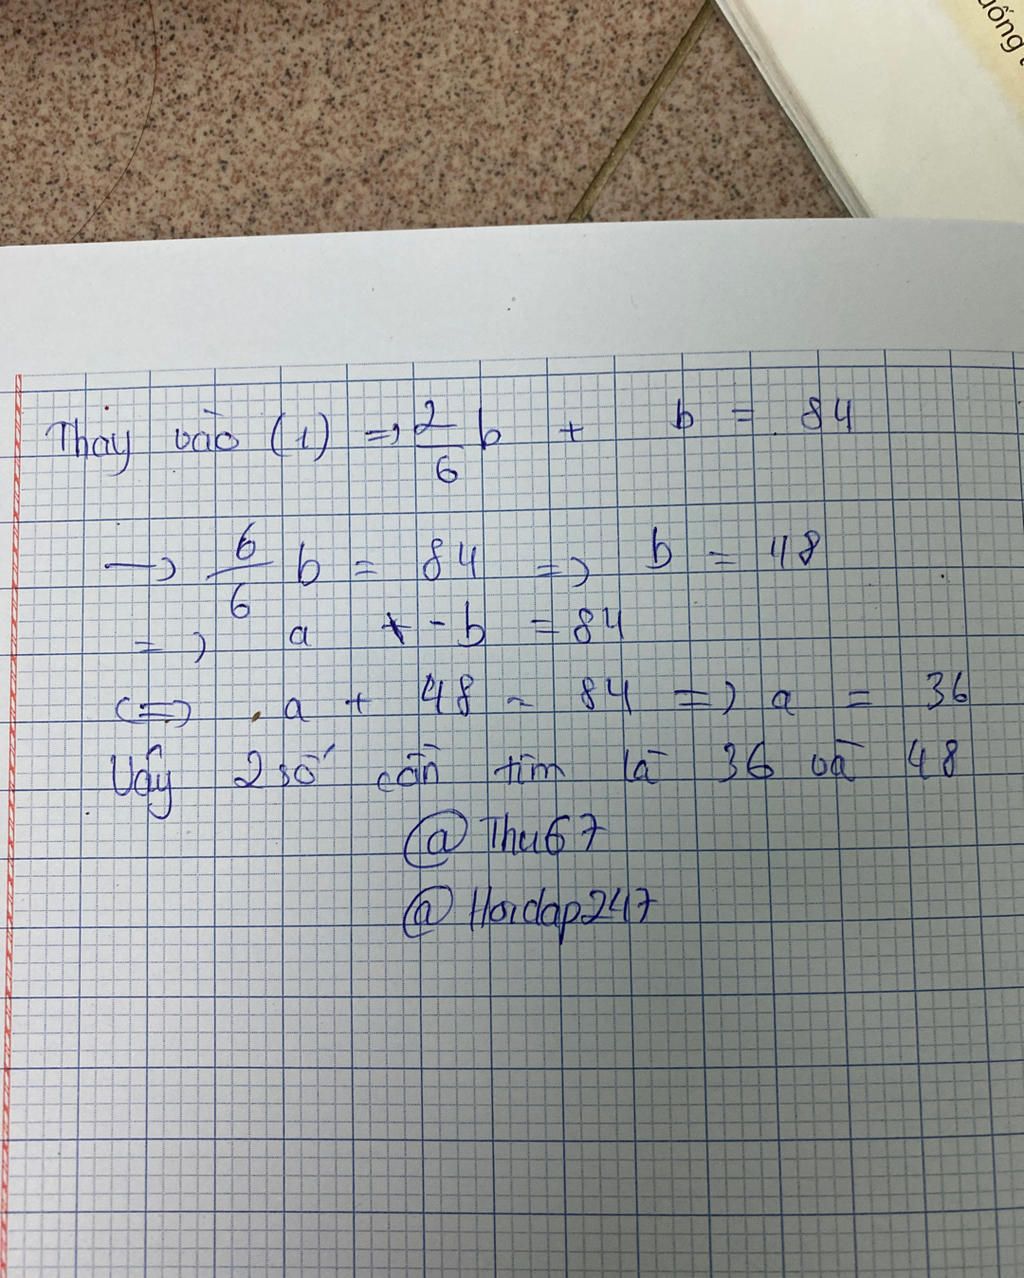 uống
Thay vào (1) => 2/6 b + b = 84
-> 6/6 b = 84 => b = 48
=> a + - b = 84
<=> a + 48 ~ 84 => a = 36
Vậy 2 số cần tìm là 36 và 48
@Thu67
@Hoidap247